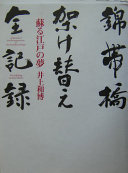 錦帯橋
架け替え
全記録
蘇る江戸の夢 井上和博